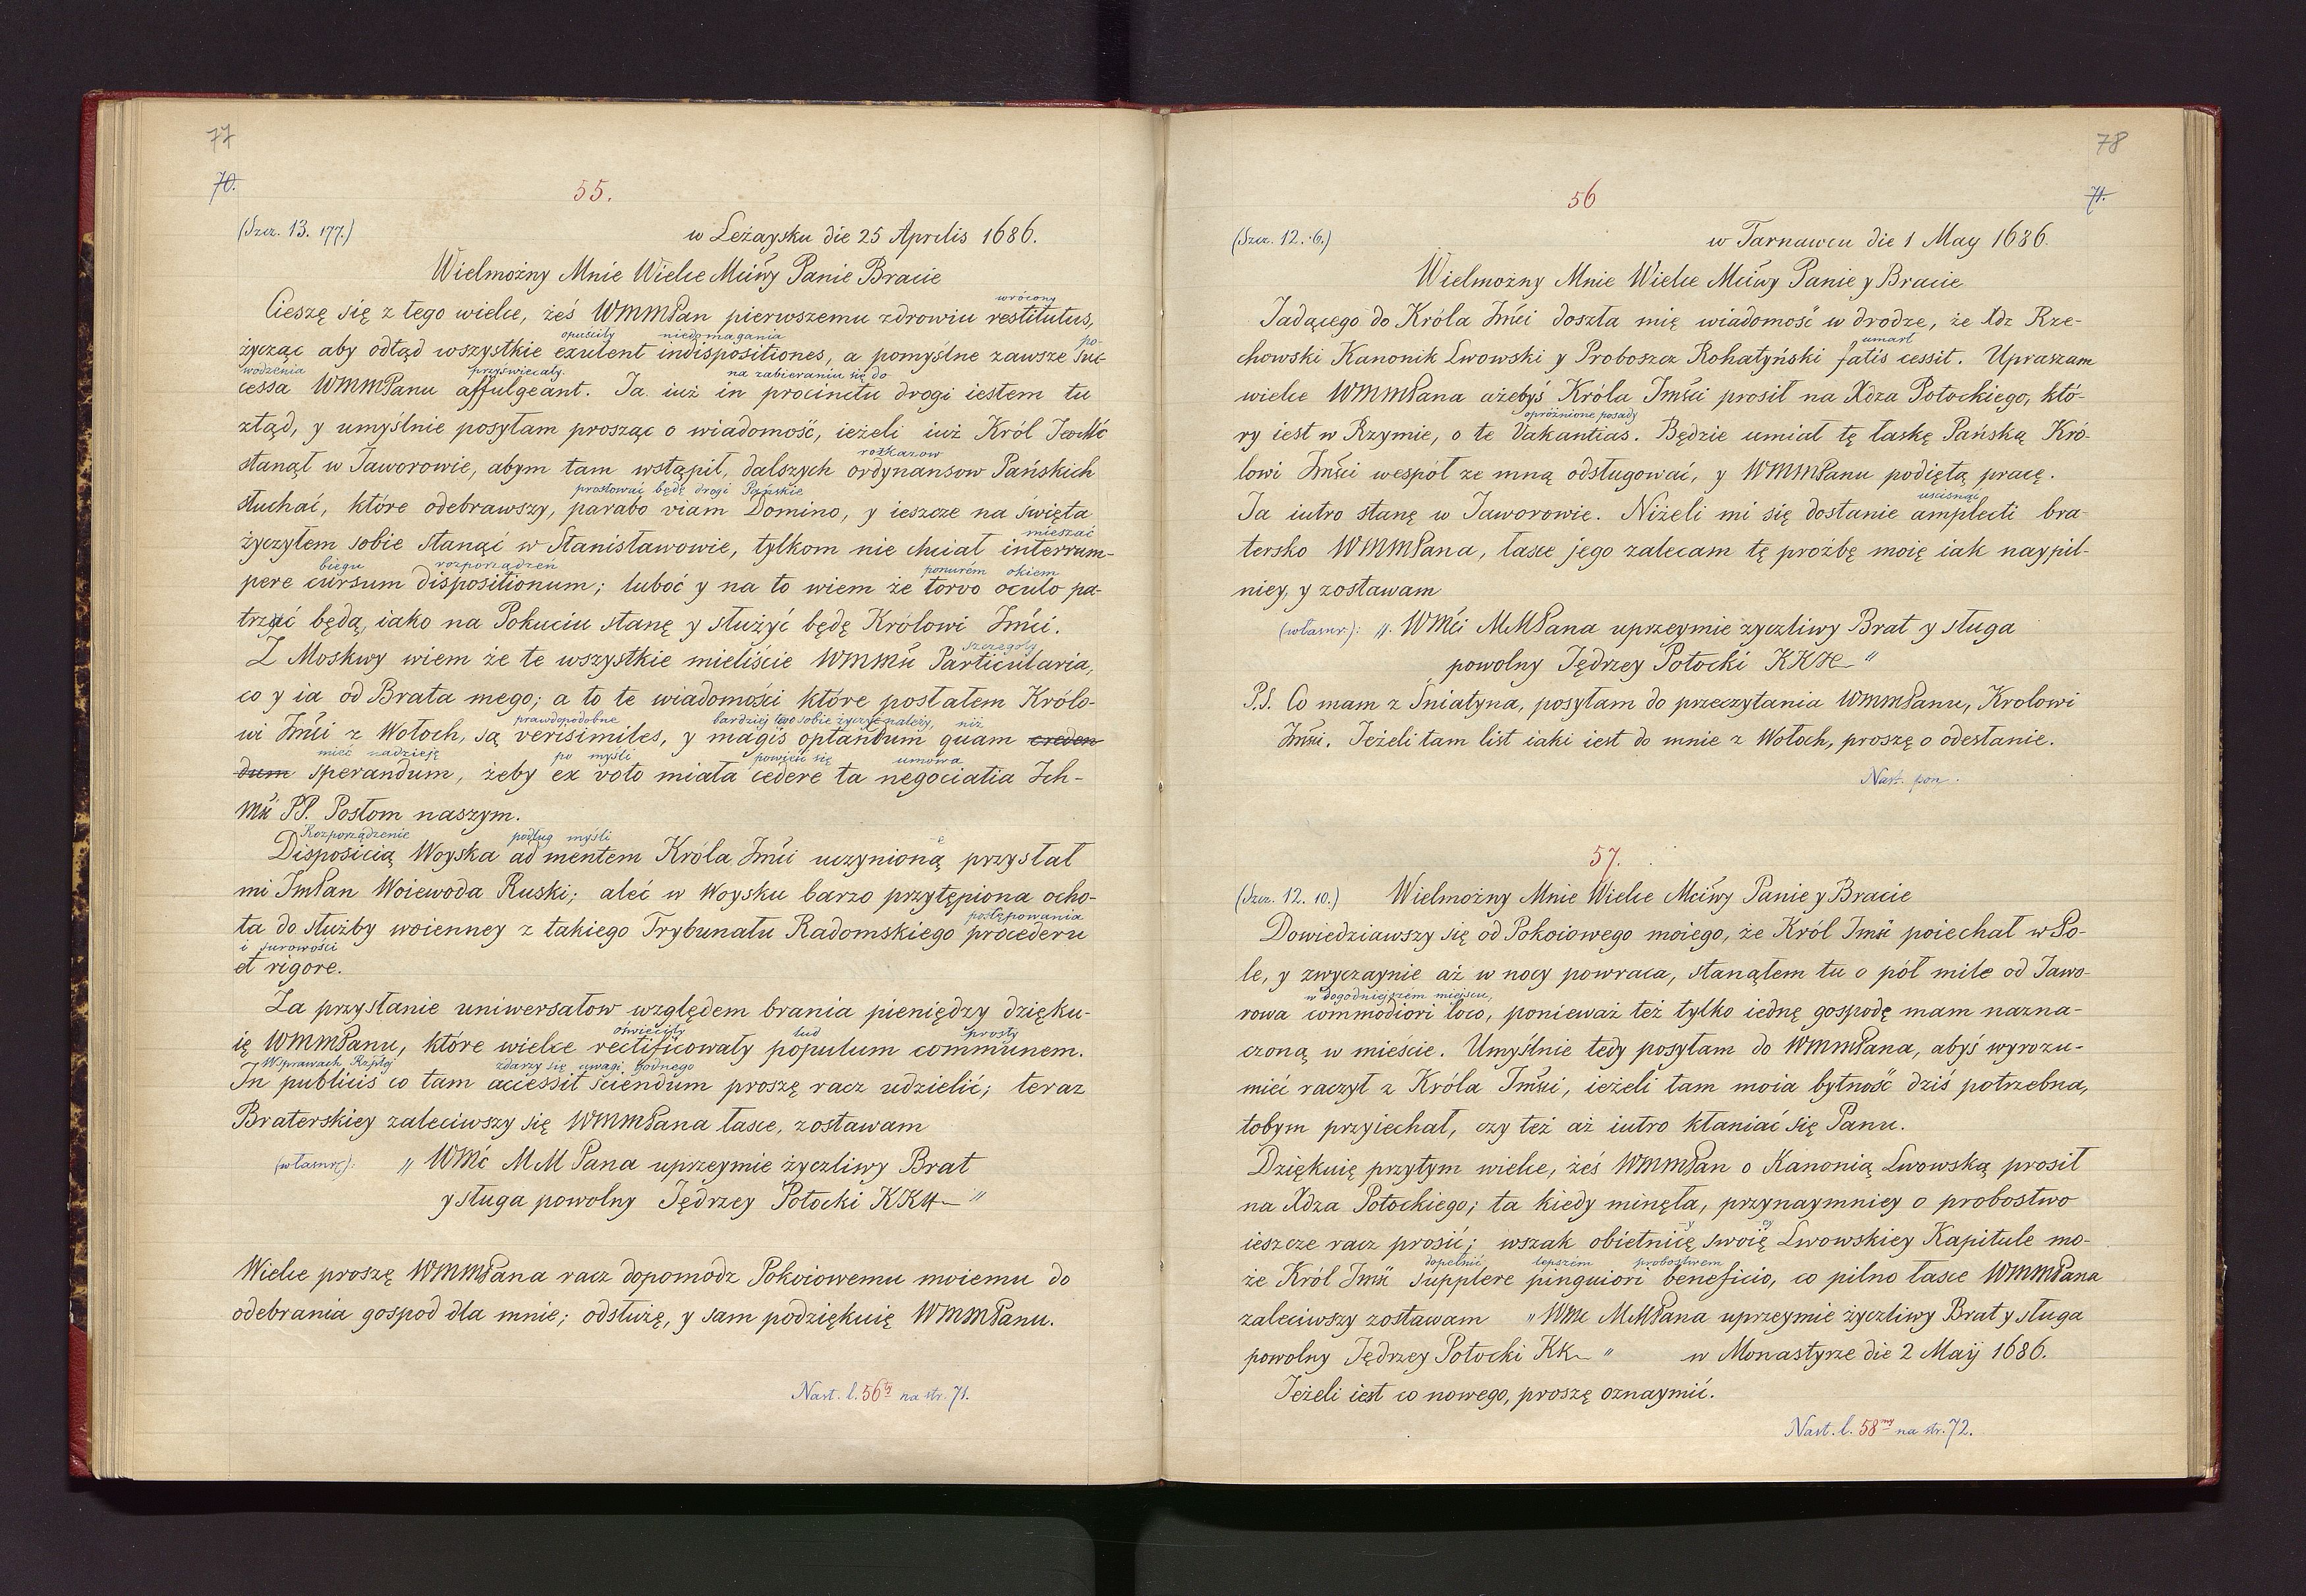 77
70.
55.
(Szcz. 13. 177.)
w Leżaysku die 25 Aprilis 1686.
Wielmożny Mnie Wielce Mciwy Panie Bracie
wrócony
Cieszę się z tego wielce, żeś WMMPan pierwszemu zdrowiu restitutus,
opuściły niedomagania po-
życząc aby odtąd wszystkie exulent indispositiones, a pomyślne zawsze suc-
wodzenia przyświecały. na zabieraniu się do
cessa WMMPanu affulgeant. Ja iuż in procinctu drogi iestem tu
ztąd, y umyślnie posyłam prosząc o wiadomość, ieżeli iuż Król JeoMć
rozkazow
stanął w Jaworowie, abym tam wstąpił, dalszych ordynansow Pańskich
prostować będę drogi Pańskie
słuchać, które odebrawszy, parabo viam Domino, y ieszcze na święta
mieszać
życzyłem sobie stanąć w Stanisławowie, tylkom nie chciał interrum-
biegu rozporządzen ponurém okiem
pere cursum dispositionum; luboć y na to wiem że torvo oculo pa-
trzyć będą, iako na Pokuciu stanę y służyć będę Królowi Jmći.
szczegoły
Z Moskwy wiem że te wszystkie mieliście WMMći Particularia,
co y ia od Brata mego; a to te wiadomości które posłałem Królo-
prawdopodobne bardziej tego sobie życzyć należy, niż
wi Jmści z Wołoch, są verisimiles, y magis optandum quam creden
mieć nadzieję po myśli powieść się umowa
dum sperandum, żeby ex voto miała cedere ta negociatia Ich-
Mći PP. Posłom naszym.
Rozporządzenie podług myśli ę
Disposicią Woyska ad mentem Króla Jmći uczynioną przysłał
mi JmPan Woiewoda Ruski; aleć w Woysku barzo przytępiona ocho-
postępowania
ta do służby woienney z takiego Trybunału Radomskiego procederu
i surowości
et rigore.
Za przysłanie uniwersałow względem brania pieniędzy dzięku-
oświeciły lud prosty
ię WMMPanu, które wielce rectificowały populum communem.
W sprawach Rzpltej zdarzy się uwagi godnego
In publicis co tam accessit sciendum proszę racz udzielić; teraz
Braterskiey zaleciwszy się WMMPana łasce, zostawam
(własnrę): „ WMć MM Pana uprzeymie życzliwy Brat
y sługa powolny Jędrzey Potocki KKH "
Wielce proszę WMMPana racz dopomodz Pokoiowemu moiemu do
odebrania gospod dla mnie; odsłużę, y sam podziękuię WMMPanu.
Nast. l. 56ty na str. 71.
78
71.
56
(Szcz. 12. 6.)
w Tarnawcu die 1 May 1686.
Wielmożny Mnie Wielce Mciwy Panie y Bracie
Jadącego do Króla Jmści doszła mię wiadomość w drodze, że Xdz Rze-
umarł
chowski Kanonik Lwowski y Proboszcz Rohatyński fatis cessit. Upraszam
wielce WMMPana ażebyś Króla Jmści prosił na Xdza Potockiego, któ-
opróżnione posady
ry iest w Rzymie, o te Vakantias. Będzie umiał tę łaskę Pańską Kró-
lowi Jmści wespół ze mną odsługować, y WMMPanu podiętą pracę.
uscisnąć
Ja iutro stanę w Jaworowie. Niżeli mi się dostanie amplecti bra-
tersko WMMPana, łasce jego zalecam tę proźbę moię iak naypil-
niey, y zostawam
(własnr.): „ WMći MMPana uprzeymie życzliwy Brat y sługa
powolny Jędrzey Potocki KKH "
P.S. Co mam z Sniatyna, posyłam do przeczytania WMMPanu, Krolowi
Jmści. Jeżeli tam list iaki iest do mnie z Wołoch, proszę o odesłanie.
Nast. pon.
57.
(Szcz. 12. 10.) Wielmożny Mnie Wielce Mciwy Panie y Bracie
Dowiedziawszy się od Pokoiowego moiego, że Król Jmść poiechał w Po-
le, y zwyczaynie aż w nocy powraca, stanąłem tu o pół mile od Jawo-
w dogodniejszém miejscu,
rowa commodiori loco, ponieważ też tylko iednę gospodę mam nazna-
czoną w mieście. Umyślnie tedy posyłam do WMMPana, abyś wyrozu-
mieć raczył z Króla Jmści, ieżeli tam moia bytność dziś potrzebna,
tobym przyiechał, czy też aż iutro kłaniać się Panu.
Dziękuię przytym wielce, żeś WMMPan o Kanonią Lwowską prosił
na Xdza Potockiego; ta kiedy minęła, przynaymniey o probostwo
y ey
ieszcze racz prosić; wszak obietnicę swoię Lwowskiey Kapitule mo-
dopełnić lepszém probostwem
że Król Jmść supplere pinguiori beneficio, co pilno łasce WMMPana
zaleciwszy zostawam „WMć MMPana uprzeymie życzliwy Brat y sługa
powolny Jędrzey Potocki KK " w Monastyrze die 2 Maij 1686.
Jeżeli iest co nowego, proszę oznaymić.
Nast. l. 58my na str. 72.